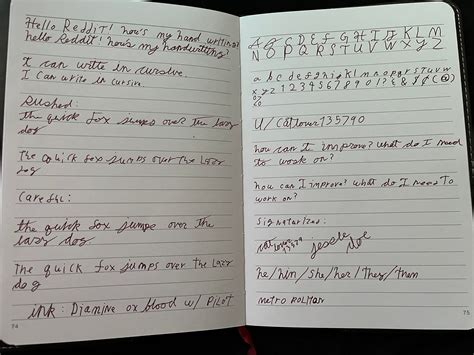 Hello Reddit! how's my hand writing?
hello Reddit! how's my handwriting?
I can write in cursive.
I can write in cursive.
Rushed:
the quick fox jumps over the lazy
dog
The quick fox jumps over the lazy
dog
Careful:
the quick fox jumps over the
lazy dog
The quick fox jumps over the lazy
dog
ink: Diamine ox blood w/ PILOT
74
A B C D E F G H I J K L M
N O P Q R S T U V W X Y Z
a b c d e f g h i j k l m n o p q r s t u v w
x y z 1 2 3 4 5 6 7 8 9 0 ! ? & $ @
U/Catlover135790
how can I improve? What do I need
to work on?
how can I improve? what do I need to
work on?
Signatures:
cat lover
jessie doe
he/him/she/her/they/them
metropolitan
75